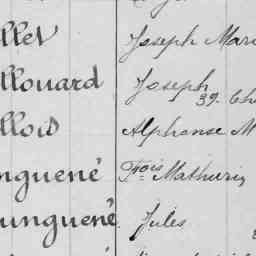 llet Joseph Mari
llouard Joseph
39. Ch
llois Alphonse M
nguené Fçois Mathurin
unguené Jules